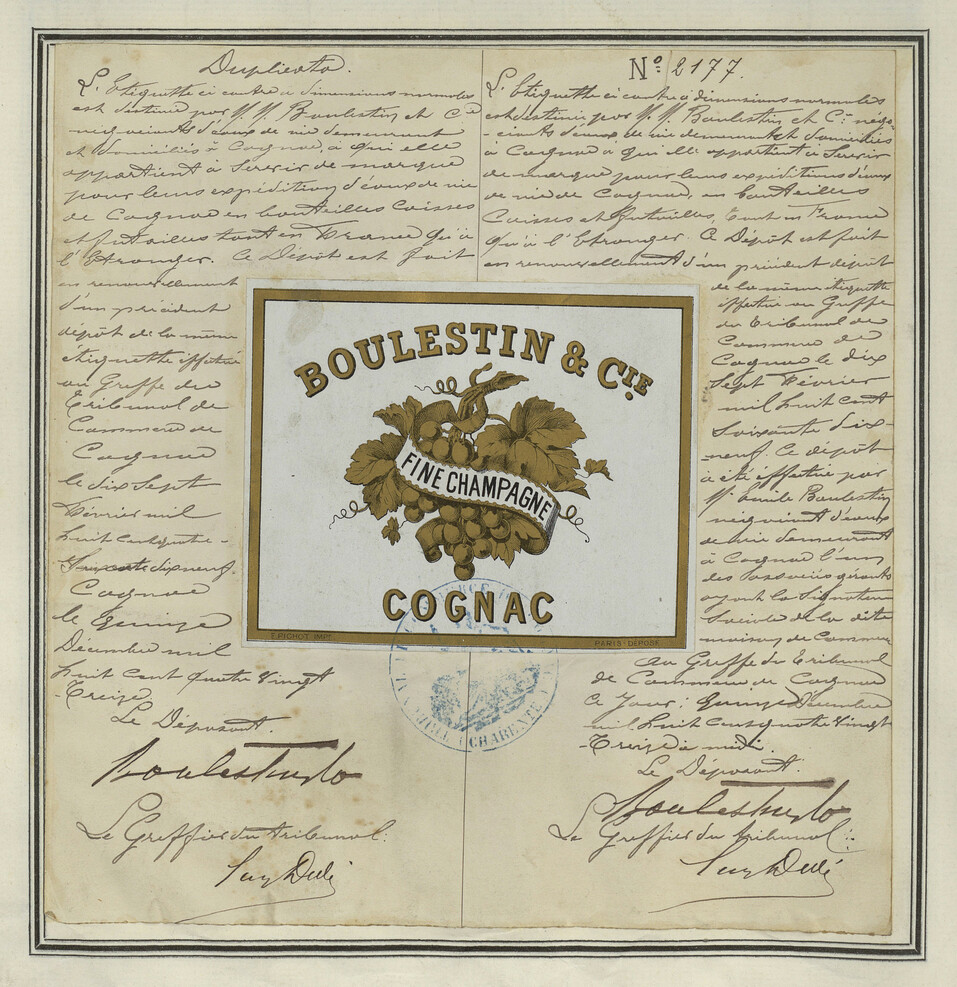 Duplicata.
L'Etiquette ci contre à dimensions normales
est destinée par M. M. Boulestin et Cie
négociants d'eaux de vie demeurant
et domiciliés à Cognac, à qui elle
appartient à servir de marque
pour leurs expéditions d'eaux de vie
de Cognac en bouteilles caisses
et futailles tant en France qu'à
l'Etranger. Ce Dépôt est fait
en renouvellement
d'un précédent
dépôt de la même
étiquette effectué
au Greffe du
Tribunal de
Commerce de
Cognac
le dix sept
Février mil
huit cent
dix neuf.
Cognac
le Quinze
Décembre mil
huit cent quatre vingt
Treize
Le Déposant.
Boulestin & Co
Le Greffier du tribunal:
N° 2177.
L'Etiquette ci contre à dimensions normales
est destinée par M. M. Boulestin et Cie négo-
-ciants d'eaux de vie demeurant et domiciliés
à Cognac à qui elle appartient à servir
de marque pour leurs expéditions d'eaux
de vie de Cognac, en bouteilles
Caisses et futailles, tant en France
qu'à l'Etranger. Ce Dépôt est fait
en renouvellement d'un précédent dépôt
de la même étiquette
effectué au Greffe
du Tribunal de
Commerce de
Cognac le dix
sept Février
mil huit cent
soixante dix-
neuf. Ce dépôt
a été effectué par
M. Emile Boulestin
négociant d'eaux
de vie demeurant
à Cognac l'un
des associés gérants
ayant la signature
sociale de la dite
maison de Commerce
au Greffe du Tribunal
de Commerce de Cognac
Ce Jour: Quinze Décembre
mil huit cent quatre vingt
-Treize à midi.
Le Déposant.
Boulestin & Co
Le Greffier du tribunal:
BOULESTIN & CIE
FINE CHAMPAGNE
COGNAC
E. PICHOT IMPT
PARIS-DÉPOSÉ
CHARENTE